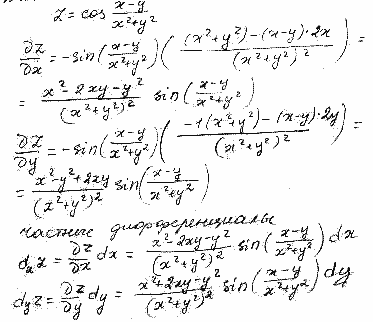 z = cos (x-y)/(x²+y²)
∂z/∂x = -sin((x-y)/(x²+y²)) ( ((x²+y²)-(x-y)·2x)/(x²+y²)² ) =
= (x²-2xy-y²)/(x²+y²)² sin((x-y)/(x²+y²))
∂z/∂y = -sin((x-y)/(x²+y²)) ( (-1(x²+y²)-(x-y)·2y)/(x²+y²)² ) =
= (x²-y²+2xy)/(x²+y²)² sin((x-y)/(x²+y²))
частные дифференциалы
dₓz = ∂z/∂x dx = (x²-2xy-y²)/(x²+y²)² sin((x-y)/(x²+y²)) dx
d_y z = ∂z/∂y dy = (x²+2xy-y²)/(x²+y²)² sin((x-y)/(x²+y²)) dy